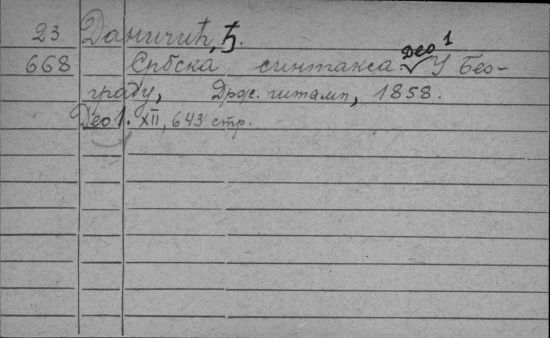 23 Даничић, Ђ.
Део 1
668 Србска синтакса У Бео-
граду, Држ. штамп, 1858.
Део 1. XII, 643 стр.